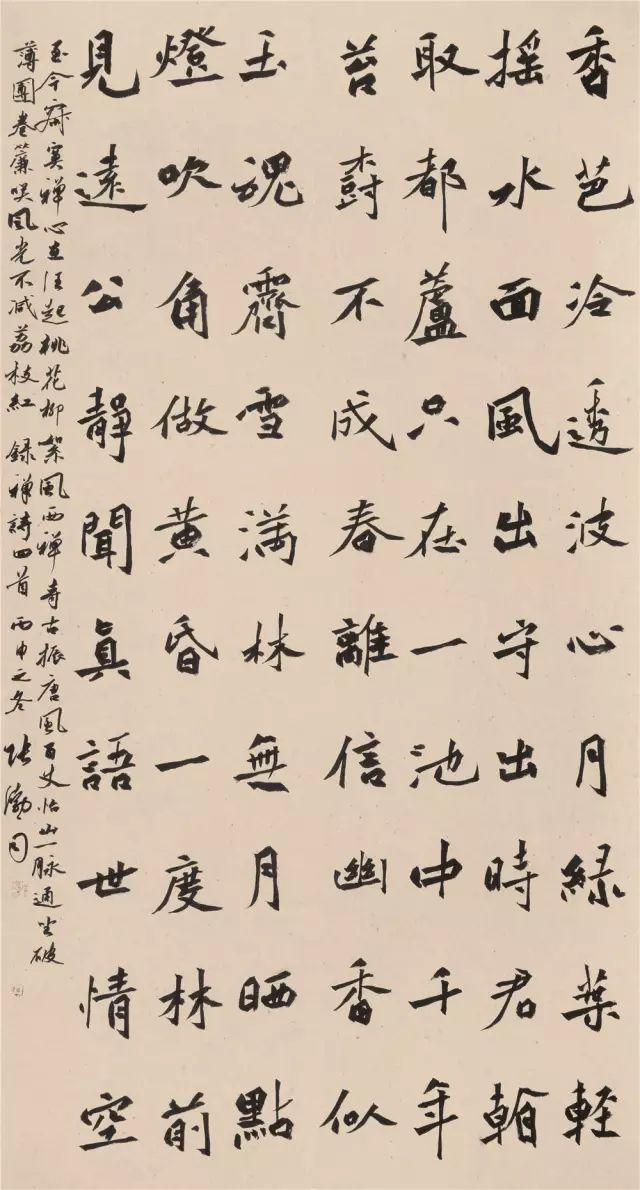 香芭冷透波心月緑葉輕
摇水面風出守出時君
取都蘆只在一池中千年
苔樹不成春離信幽香似
玉魂霽雪滿林無月晒點
燈吹角做黄昏一度林前
見遠公靜聞真語世情空
至今寂寞禪心在任起桃花柳絮風西禪寺古振唐風百丈怡山一脉通坐破
薄團卷簾咲風光不减荔枝紅 録禪詩四首 丙申之冬